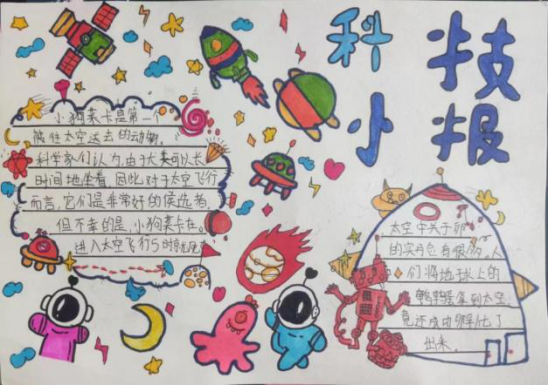 科技
小报
小狗莱卡是第一个
被往太空送去的动物。
科学家们认为,由于犬类可以长
时间地坐着,因此对于太空飞行
而言,它们是非常好的候选者,
但不幸的是,小狗莱卡在
进入太空飞行5时
太空中关于卵
的实验也有很多,人
们将地球上的
鹌鹑蛋拿到太空,
竟还成功孵化了
出来。